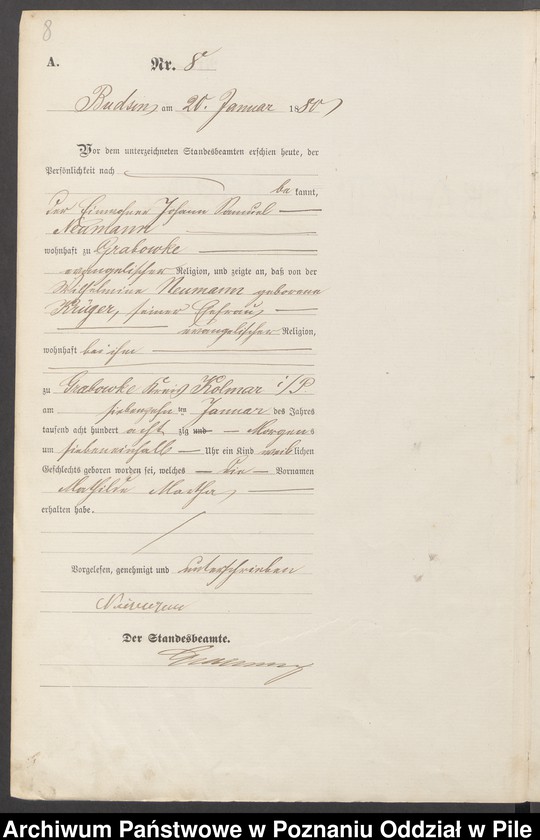 8
A. Nr. 8
Budsin, am 20. Januar 1880
Vor dem unterzeichneten Standesbeamten erschien heute, der
Persönlichkeit nach
be kannt,
der Einwohner Johann Samuel
Neumann
wohnhaft zu Grabowke
evangelischer Religion, und zeigte an, daß von der
Wilhelmine Neumann geborene
Krüger, seiner Ehefrau,
evangelischer Religion,
wohnhaft bei ihm
zu Grabowke Kreis Kolmar i/P
am siebenzehn ten Januar des Jahres
tausend acht hundert acht zig und Morgens
um siebeneinhalb Uhr ein Kind weiblichen
Geschlechts geboren worden sei, welches die Vornamen
Mathilde Martha,
erhalten habe.
Vorgelesen, genehmigt und unterschrieben
Der Standesbeamte.
Archiwum Państwowe w Poznaniu Oddział w Pile